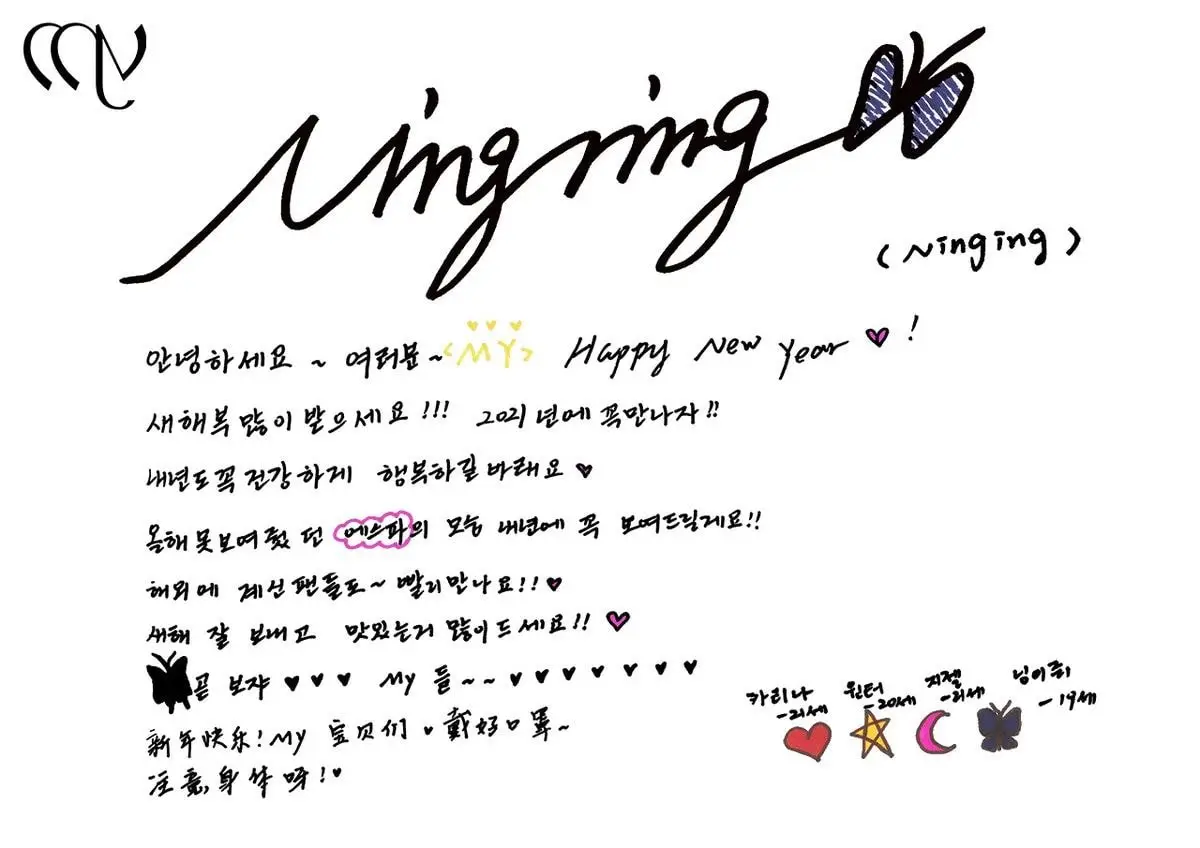 MY
Ningning
(Ninging)
안녕하세요 ~ 여러분~ <MY> Happy New Year ♥!
새해복 많이 받으세요!!! 2021년에 꼭만나자!!
내년도 꼭 건강하게 행복하길 바래요 ♥
올해 못 보여줬던 에스파의 모습 내년에 꼭 보여드릴게요!!
해외에 계신 팬들도~ 빨리 만나요!!♥
새해 잘 보내고 맛있는거 많이 드세요!! ♥
곧 보쟈 ♥ ♥ ♥ My 들~~♥ ♥ ♥ ♥ ♥ ♥ ♥ ♥
新年快乐! My 宝贝们 ♥ 戴好口罩~
注意,身体呀!♥
카리나 -21세
윈터 -20세
지젤 -21세
닝이줘 -19세